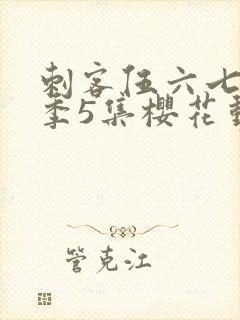 刺客伍六七
季5集樱花
管克江